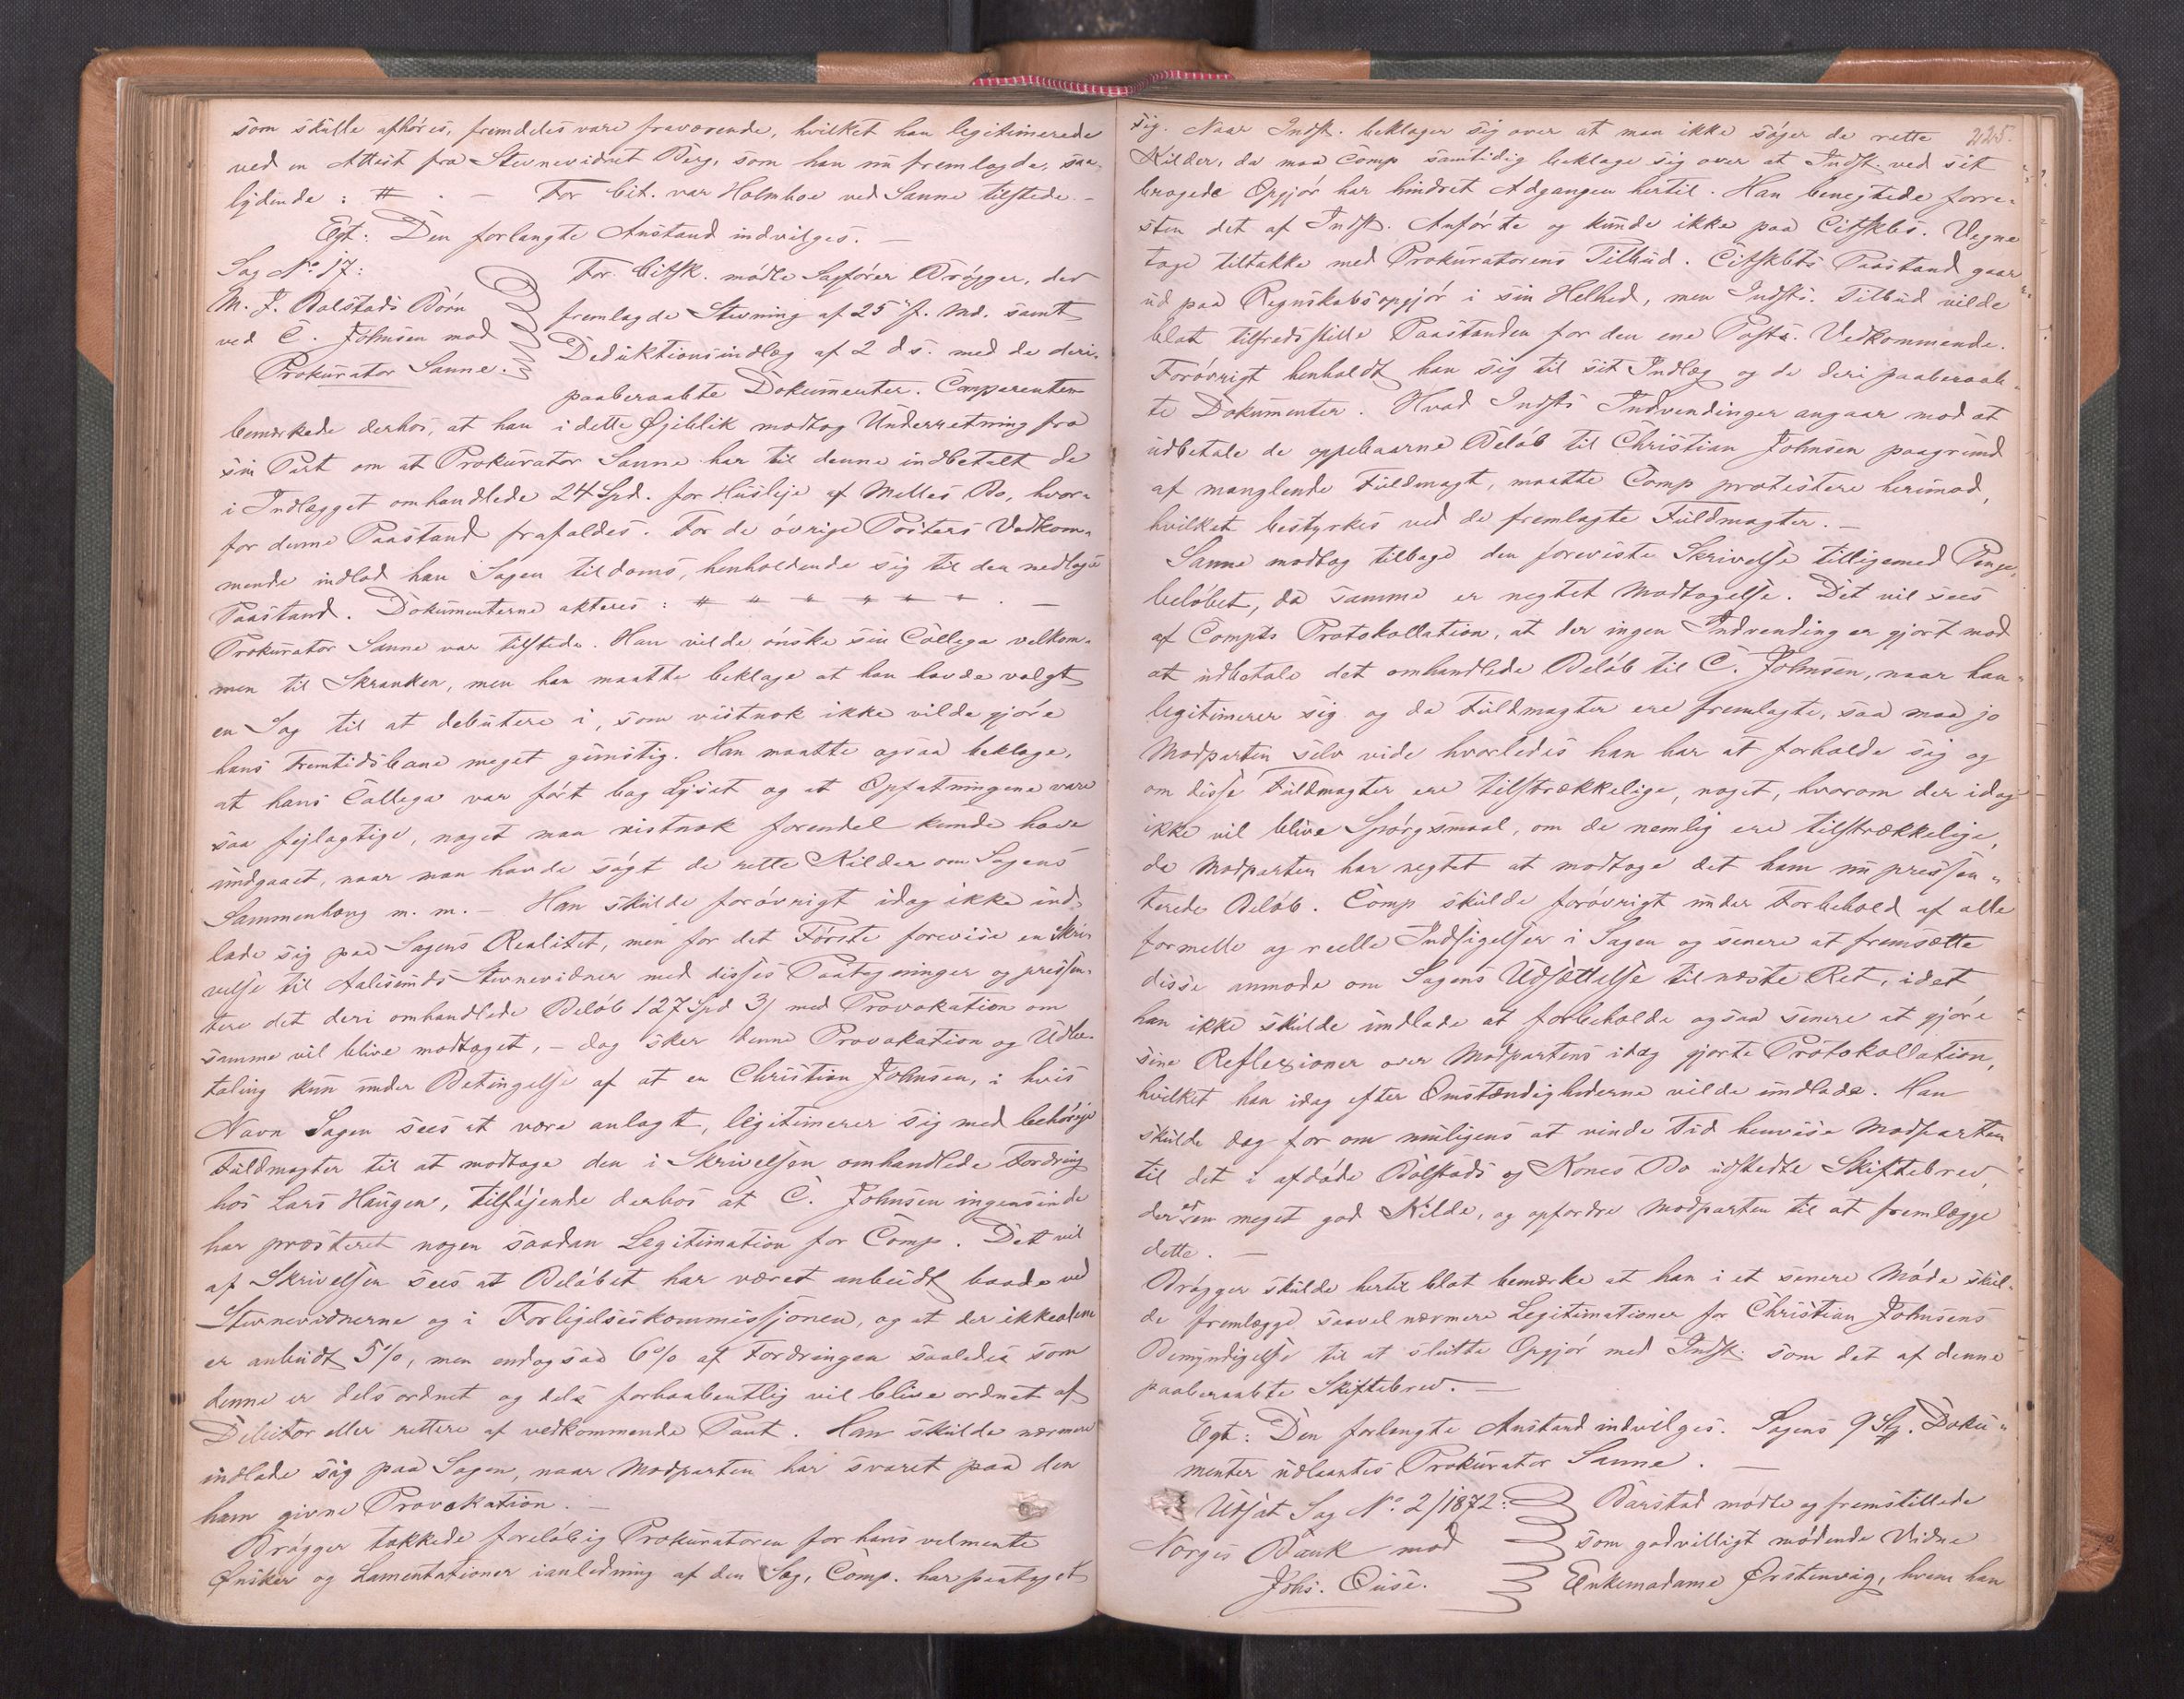 som skulle afhøres, fremdeles vare fraværende, hvilket han legitimerede
ved en Attest fra Stevnevidnet Berg, som han nu fremlagde, saa-
lydende: # . — For Cit. var Holmboe ved Sanne tilstede. —
Egt: Den forlangte Anstand indvilges. —
Sag No 17:
M. J. Bolstads Børn
ved C. Johnsen mod
Prokurator Sanne.
For Citsk. mødte Sagfører Brøgger, der
fremlagde Stevning af 25 f. Md. samt
Deduktionsindlæg af 2 ds. med de deri-
paaberaabte Dokumenter. Comparenten
bemærkede derhos, at han i dette Øieblik modtog Underretning fra
sin Part om at Prokurator Sanne har til denne indbetalt de
i Indlægget omhandlede 24 Spd. for Husleje af Melles Bo, hvor-
for denne Paastand frafaldes. For de øvrige Posters Vedkom-
mende indlod han Sagen til doms, henholdende sig til den nedlagte
Paastand. Dokumenterne akteres: # " " # " " . —
Prokurator Sanne var tilstede. Han vilde ønske sin Collega velkom-
men til Skranken, men han maatte beklage at han havde valgt
en Sag til at debutere i, som vistnok ikke vilde gjøre
hans Fremtidsbane meget gunstig. Han maatte ogsaa beklage,
at hans Collega var ført bag Lyset og at Opfatningene vare
saa fejlagtige, noget man vistnok forendel kunde have
undgaaet, naar man havde søgt de rette Kilder om Sagens
Sammenhæng m. m. — Han skulde forøvrigt idag ikke ind-
lade sig paa Sagens Realitet, men for det Første forevise en Skri-
velse til Aalesunds Stevnevidner med disses Paategninger og pressen-
tere det deri omhandlede Beløb 127 Spd 3/ med Provokation om
samme vil blive modtaget, — dog sker denne Provokation og Udbe-
taling kun under Betingelse af at en Christian Johnsen, i hvis
Navn Sagen sees at være anlagt, legitimerer sig med behørige
Fuldmagter til at modtage den i Skrivelsen omhandlede Fordring
hos Lars Haugen, tilføjende derhos at C. Johnsen ingensinde
har præsteret nogen saadan Legitimation for Comp. Det vil
af Skrivelsen sees at Beløbet har været anbudt baade ved
Stevnevidnerne og i Forligelseskommissjonen, og at der ikke alene
er anbudt 5%, men endogsaa 6% af Fordringen saaledes som
denne er dels ordnet og dels forhaabentlig vil blive ordnet af
Debitor eller rettere af vedkommende Pant. Han skulde nærmere
indlade sig paa Sagen, naar Modparten har svaret paa den
ham givne Provokation. —
Brøgger takkede foreløbig Prokuratoren for hans velmente
Ønsker og Lamentationer ianledning af den Sag, Comp. har paataget
225.
sig. Naar Indst. beklager sig over at man ikke søger de rette
Kilder, da maa Comp samtidig beklage sig over at Indst. ved sit
brogede Opgjør har hindret Adgangen hertil. Han benegtede forre-
sten det af Indst. Anførte og kunde ikke paa Citskbs. Vegne
tage tiltakke med Prokuratorens Tilbud. Citskbts Paastand gaar
ud paa Regnskabsopgjør i sin Helhed, men Indsts. Tilbud vilde
blot tilfredsstille Paastanden for den ene Posts. Vedkommende.
Forøvrigt henholdt han sig til sit Indlæg og de deri paaberaab-
te Dokumenter. Hvad Indsts Indvendinger angaar mod at
udbetale de oppebaarne Beløb til Christian Johnsen paagrund
af manglende Fuldmagt, maatte Comp protestere herimod,
hvilket bestyrkes ved de fremlagte Fuldmagter. —
Sanne modtog tilbage den foreviste Skrivelse tilligemed Penge-
beløbet, da samme er negtet Modtagelse. Det vil sees
af Compts Protokollation, at der ingen Indvending er gjort mod
at udbetale det omhandlede Beløb til C. Johnsen, naar han
legitimerer sig og da Fuldmagter ere fremlagte, saa maa jo
Modparten selv vide hvorledes han har at forholde sig og
om disse Fuldmagter ere tilstrækkelige, noget, hvorom der idag
ikke vil blive Spørgsmaal, om de nemlig ere tilstrækkelige,
da Modparten har negtet at modtage det ham nu pressen-
terede Beløb. Comp skulde forøvrigt under Forbehold af alle
formelle og reelle Indsigelser i Sagen og senere at fremsætte
disse anmode om Sagens Udsættelse til næste Ret, idet
han ikke skulde undlade at forbeholde ogsaa senere at gjøre
sine Reflexioner over Modpartens idag gjorte Protokollation,
hvilket han idag efter Omstændighederne vilde undlade. Han
skulde dog for om muligens at vinde Tid henvise Modparten
til det i afdøde Bolstads og Kones Bo udstedte Skiftebrev,
der er en meget god Kilde, og opfordre Modparten til at fremlægge
dette. —
Brøgger skulde hertil blot bemærke at han i et senere Møde skul-
de fremlægge saavel nærmere Legitimationer for Christian Johnsens
Bemyndigelse til at slutte Opgjør med Indst. som det af denne
paaberaabte Skiftebrev. —
Egt: Den forlangte Anstand indvilges. Sagens 9 Stk. Doku-
menter udlaantes Prokurator Sanne. —
Udsat Sag No 2/1872:
Norges Bank mod
Johs. Ouse.
Barstad mødte og fremstillede
som godvilligt mødende Vidne
Enkemadame Ørstenvig, hvem han